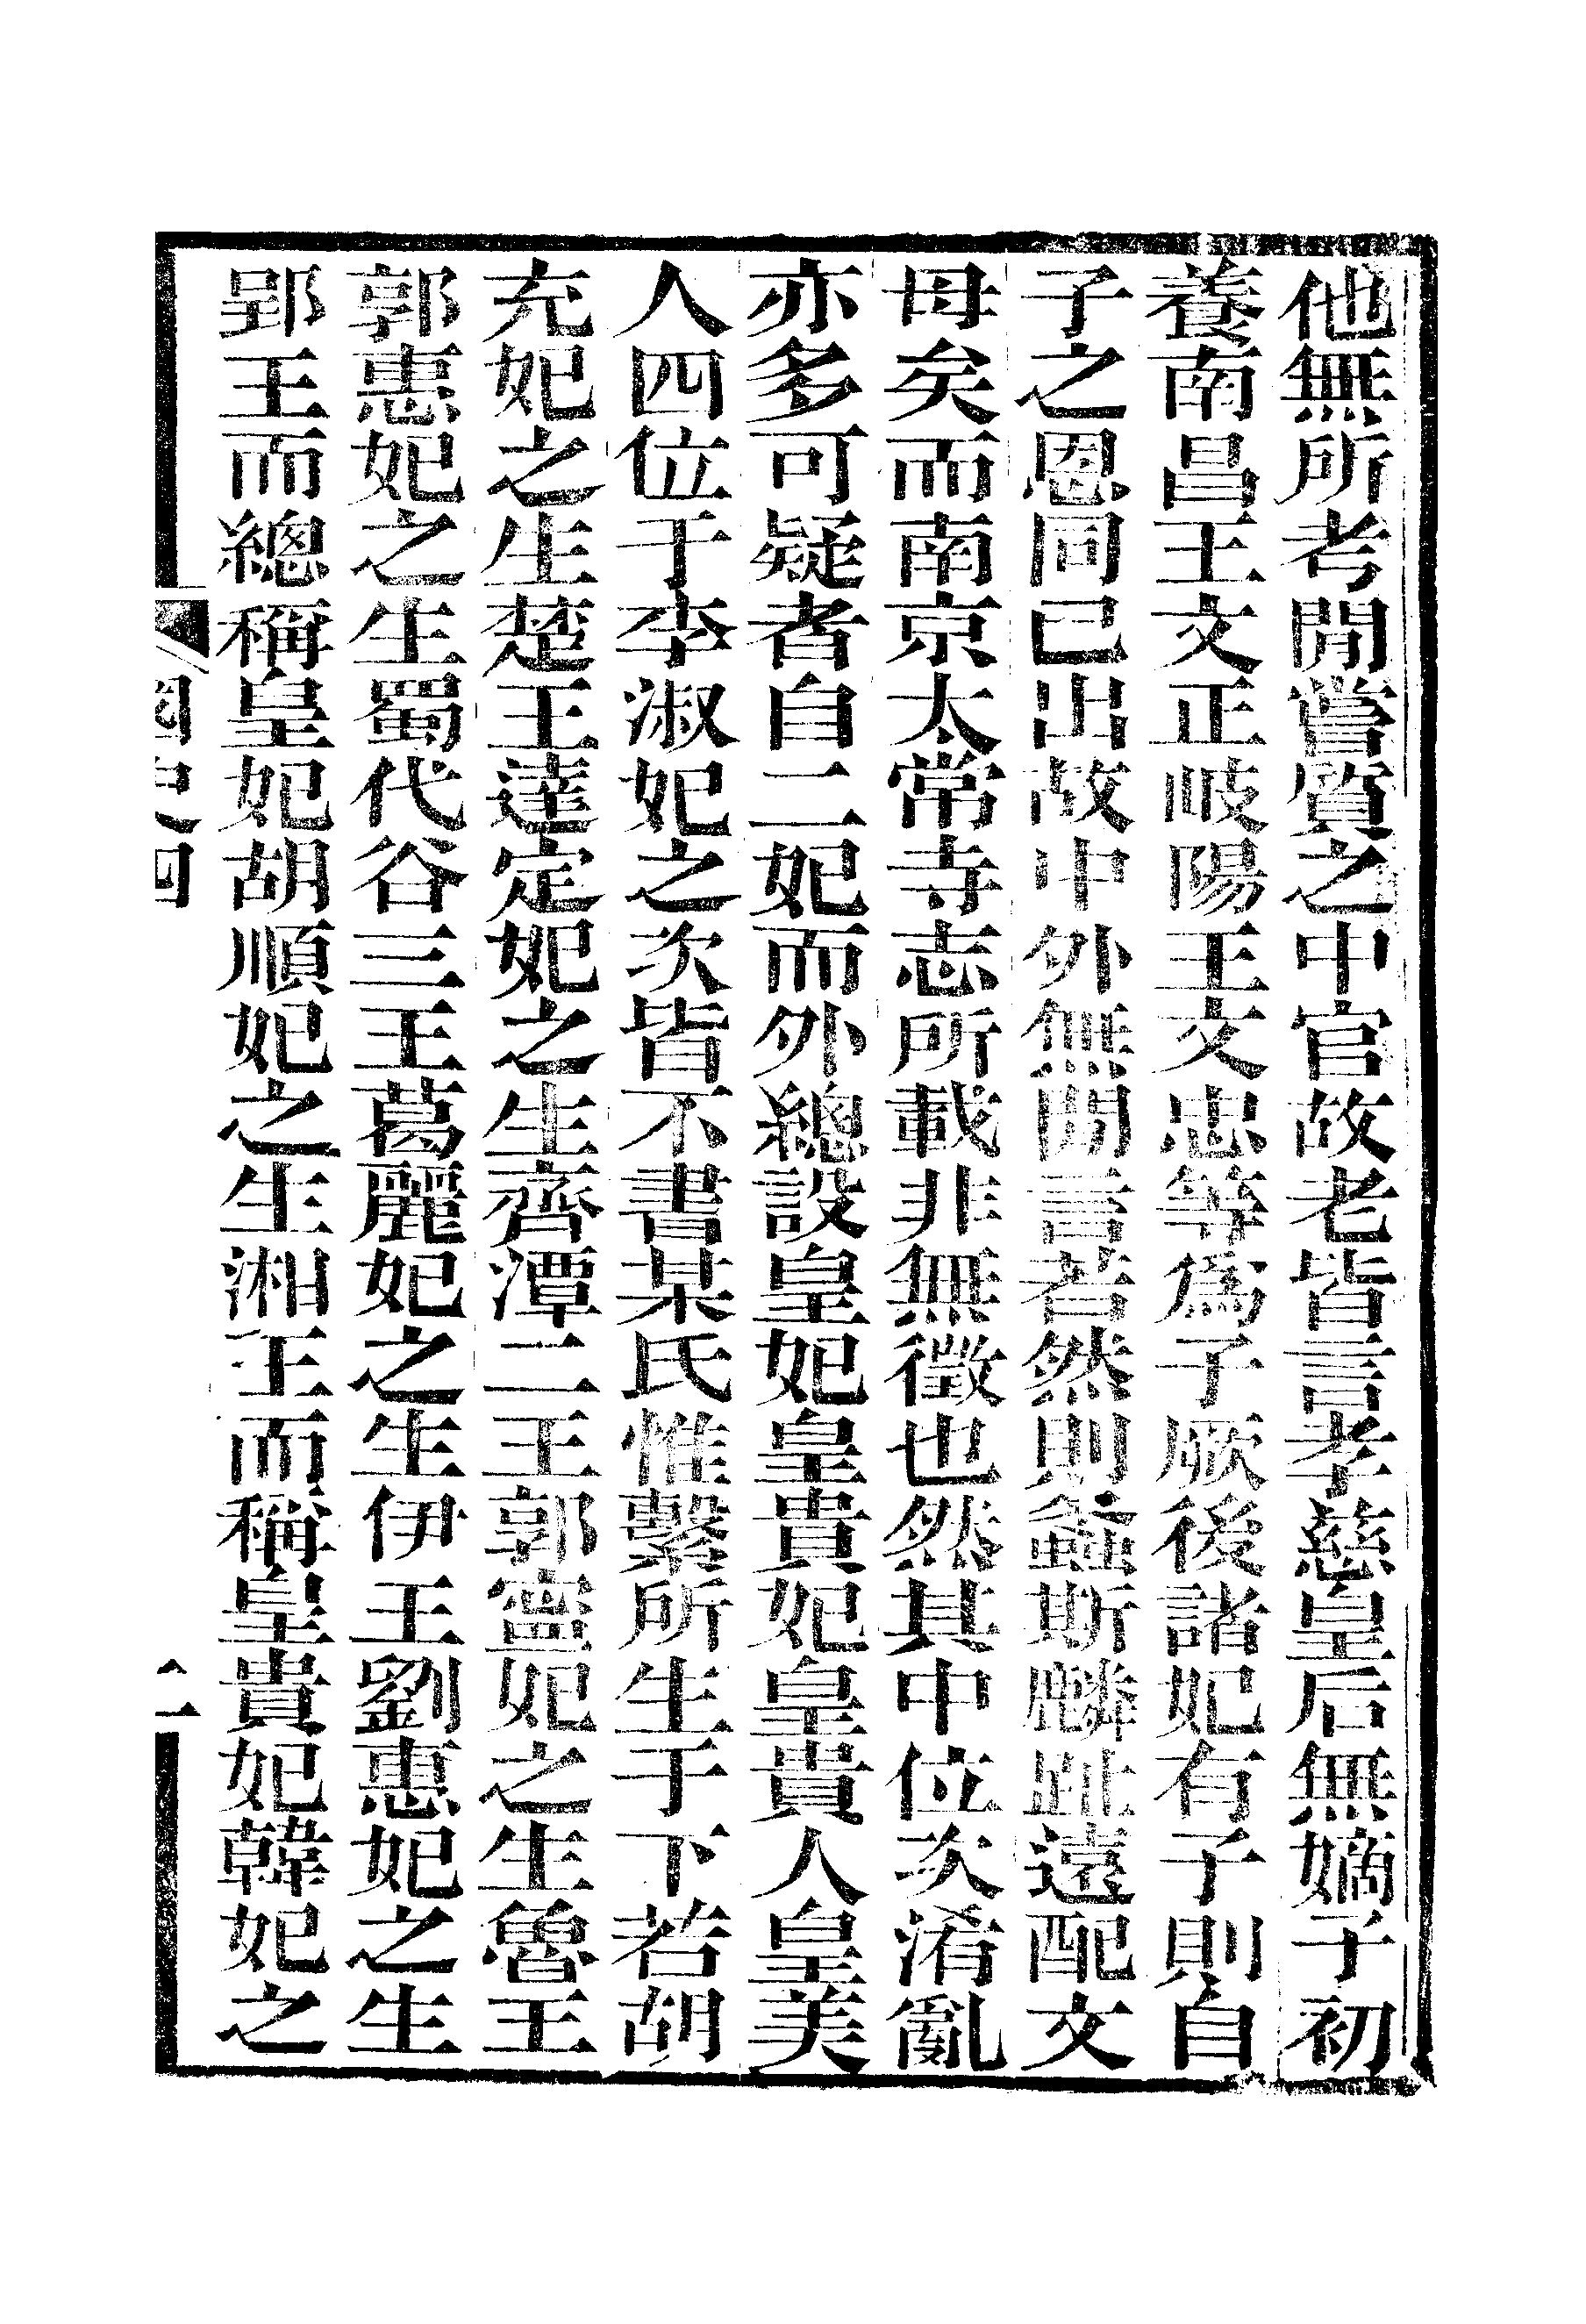 他無所考閒嘗質之中官故老皆言孝慈皇后無嫡子初
養南昌王文正岐陽王文忠等爲子厥後諸妃有子則自
子之恩同已出故中外無閒言者然則螽斯麟趾遠配文
母矣而南京太常寺志所載非無徵也然其中位次淆亂
亦多可疑者自二妃而外總設皇妃皇貴妃皇貴人皇美
人四位于李淑妃之次皆不書某氏惟繫所生于下若胡
充妃之生楚王達定妃之生齊潭二王郭寧妃之生魯王
郭惠妃之生蜀代谷三王葛麗妃之生伊王劉惠妃之生
郢王而總稱皇妃胡順妃之生湘王而稱皇貴妃韓妃之
國史四
二